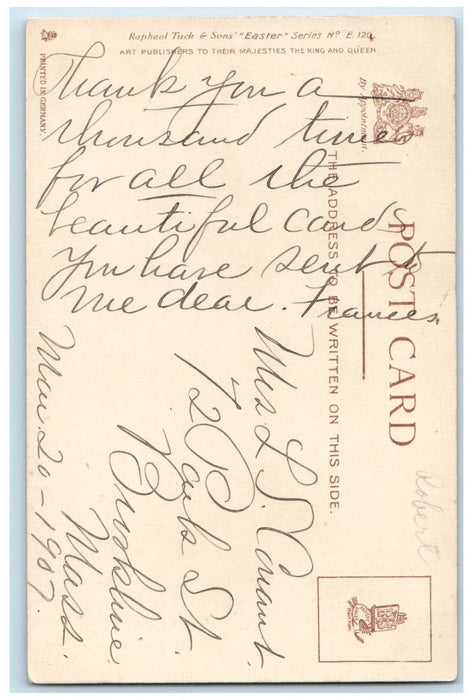 Raphael Tuck & Sons' "Easter" Series Nº E. 120.
ART PUBLISHERS TO THEIR MAJESTIES THE KING AND QUEEN.
PRINTED IN GERMANY.
By Appointment.
POST CARD
THE ADDRESS TO BE WRITTEN ON THIS SIDE.
Thank you a
thousand times
for all the
beautiful cards
you have sent to
me dear. Frances.
Mrs L. S. Conant.
72 Park St.
Brookline.
Mass.
Mar. 20-1907.
Robert